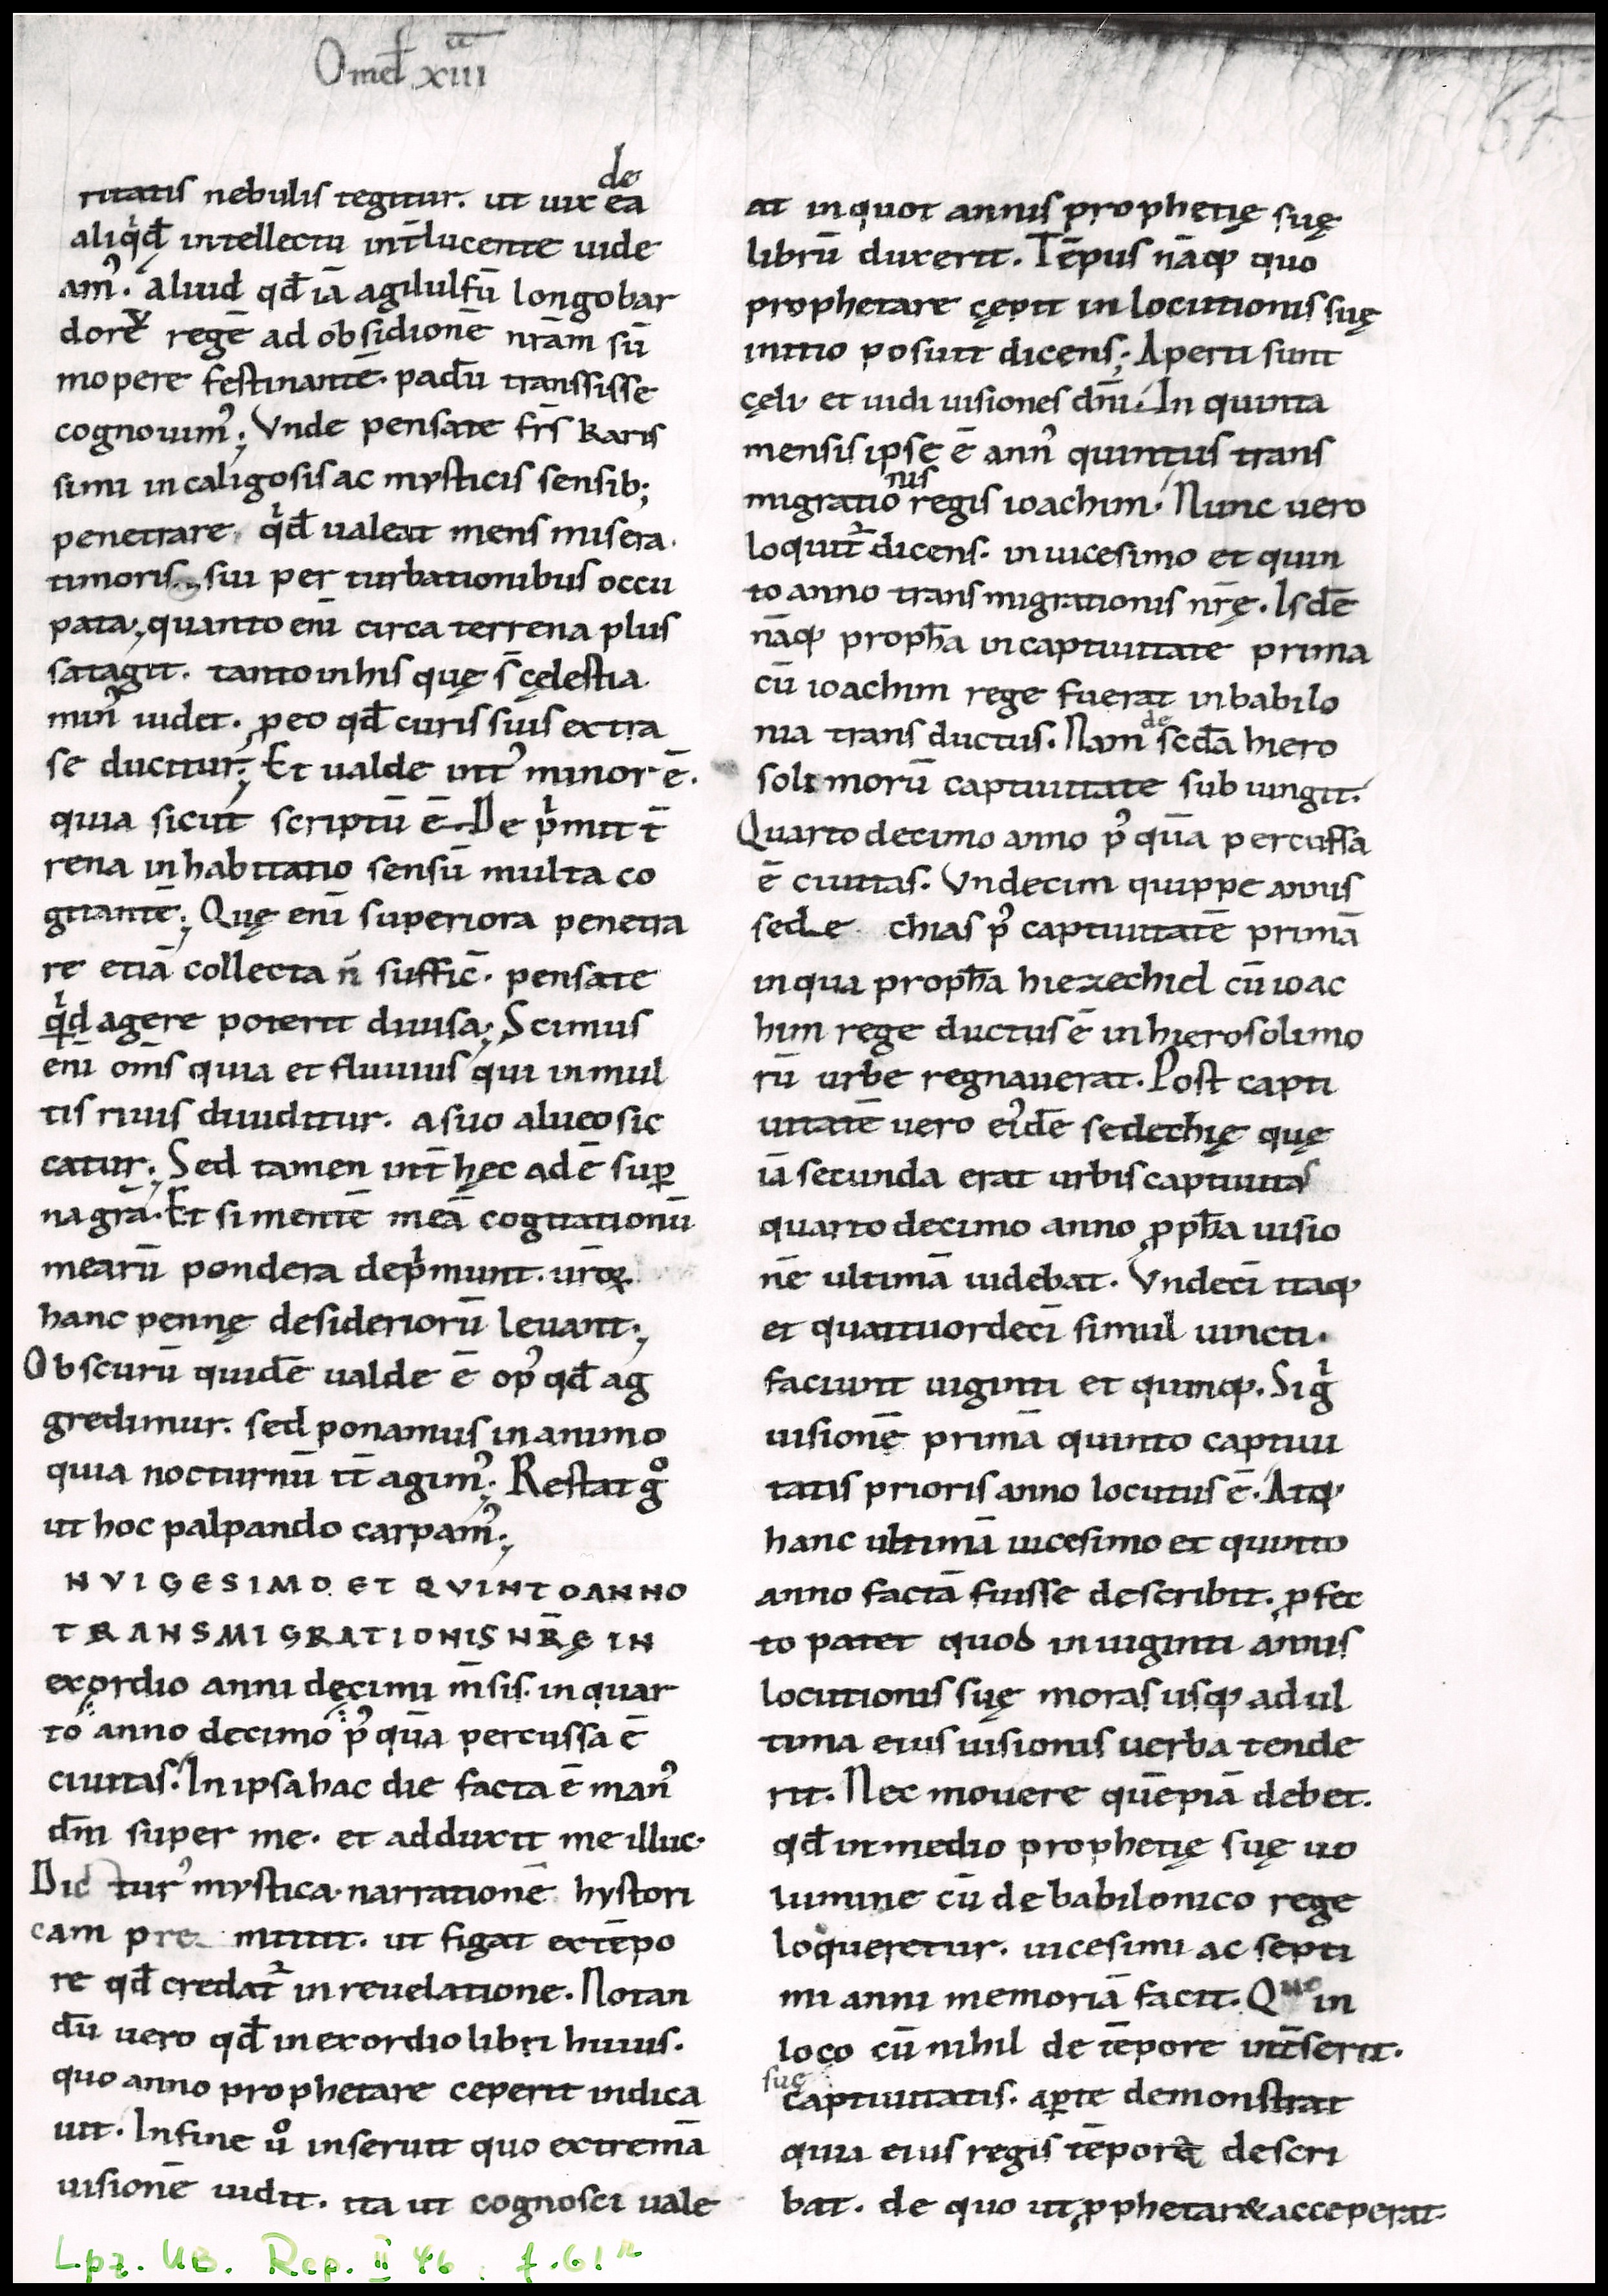 Omel xiii
61
de
ritatis nebulis tegitur. ut uix ea
aliq̍d̄ intellectu int̄lucente uide
am᷒. Aliud qd̄ iā agilulfū longobar
dorē regē ad obsidionē nrām sū
mopere festinantē. padū transsisse
cognouim᷒; Vnde pensate fr̄s karis
simi in caligosis ac mysticis sensib;
penetrare q̍d̄ ualeat mens misera.
timoris sui per turbationibus occu
pata, quanto enī circa terrena plus
satagit. tanto in his quę s̄ cęlestia
min᷒ uidet. ꝓeo qd̄ curis suis extra
se ducitur; Et ualde int᷒ minor ē.
quia sicut scriptū ē. De p̍mit t̄
rena inhabitatio sensū multa co
gitantē; Quę enī superiora penetra
re etiā collecta n̄ sufficꝰ. pensate
q̍d agere poterit diuisa; Scimus
enī om̄s quia et fluuius qui in mul
tis riuis diuiditur. a suo alueo sic
catur; Sed tamen int̄ hęc adē suꝑ
na gr̄a. Et si mentē meā cogitationū
mearū pondera dep̍munt. ur̄oꝝ
hanc pennę desideriorū leuant;
Obscurū quidē ualde ē op᷒ qd̄ ag
gredimur. sed ponamus in animo
quia nocturnū it̄ agim᷒; Restat g̊
ut hoc palpando carpam᷒;
NVIGESIMO ET QVINTO ANNO
TRANSMIGRATIONIS NR̄Ę IN
exordio anni dęcimi m̄sis. in quar
to anno decimo p᷒ quā percussa ē
ciuitas. In ipsa hac die facta ē man᷒
dn̄i super me. et adduxit me illuc.
Dic tur᷒ mystica narrationē hystori
cam pre mittit. ut figat ex tēpo
re qd̄ credat᷑ in reuelatione. Notan
dū uero qd̄ in exordio libri huius.
quo anno prophetare ceperit indica
uit. In fine ů inseruit quo extremā
uisionē uidit. ita ut cognosci uale
at in quot annis prophetię suę
librū duxerit. Tēpus nāqꝫ quo
prophetare cępit in locutionis suę
initio posuit dicens; Aperti sunt
cęli et uidi uisiones dn̄i. In quinta
mensis ipse ē ann᷒ quintus trans
nis
migratio regis ioachim. Nunc uero
loquit᷑ dicens. in uicesimo et quin
to anno trans migrationis nr̄ę. Isdē
nāqꝫ proph̄a in captiuitate prima
cū ioachim rege fuerat in babilo
nia trans ductus. Nam de scd̄a hiero
soli morū captiuitate sub iungit.
Quarto decimo anno p᷒ quā percussa
ē ciuitas. Vndecim quippe annis
sede chias p᷒ captiuitatē primā
in qua proph̄a hiezechiel cū ioac
him rege ductus ē in hierosolimo
rū urbe regnauerat. Post capti
uitatē uero ei᷒dē sedechię quę
iā secunda erat urbis captiuitas
quarto decimo anno ꝓph̄a uisio
nē ultimā uidebat. Vndecī itaqꝫ
et quattuordecī simul uincti.
faciunt uiginti et quinqꝫ. Sig̍
uisionē primā quinto captiui
tatis prioris anno locutus ē. Atqꝫ
hanc ultimā uicesimo et quinto
anno factā fuisse describit. ꝓfec
to patet quod in uiginti annis
locutionis suę moras usqꝫ ad ul
tima eius uisionis uerba tende
rit. Nec mouere quēpiā debet.
qd̄ in medio prophetię suę uo
lumine cū de babilonico rege
loqueretur. uicesimi ac septi
mi anni memoriā facit. Quo in
loco cū nihil de tēpore int̄serit.
suę
captiuitatis. aꝑte demonstrat
quia eius regis tēpora descri
bat. de quo ut ꝓphetar& acceperat.
Lpz. UB. Rep. II 46, f. 61r